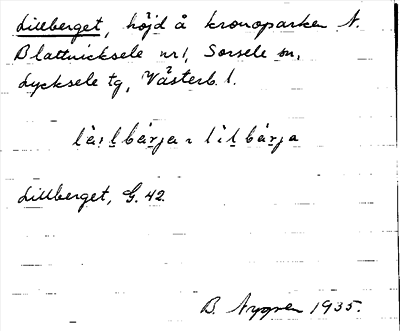 Lillberget, höjd å kronoparken N.
Blattnicksele nr 1, Sorsele sn,
Lycksele tg, Västerb. l.
Lillberget, G. 42.
B. Nygren 1935.